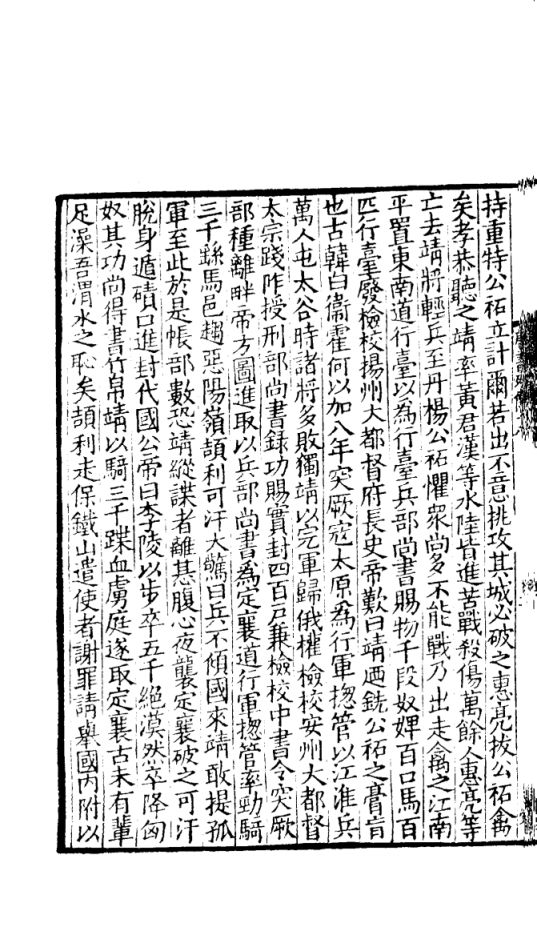 持重特公祏立計爾若出不意挑攻其城必破之惠亮拔公祏禽
矣孝恭聽之靖率黃君漢等水陸皆進苦戰殺傷萬餘人惠亮等
亡去靖將輕兵至丹楊公祏懼衆尚多不能戰乃出走禽之江南
平置東南道行臺以為行臺兵部尚書賜物千段奴婢百口馬百
匹行臺廢檢校揚州大都督府長史帝歎曰靖迺銑公祏之膏肓
也古韓白衞霍何以加八年突厥寇太原爲行軍揔管以江淮兵
萬人屯太谷時諸將多敗獨靖以完軍歸俄權檢校安州大都督
太宗踐阼授刑部尚書錄功賜實封四百戶兼檢校中書令突厥
部種離畔帝方圖進取以兵部尚書爲定襄道行軍揔管率勁騎
三千繇馬邑趨惡陽嶺頡利可汗大驚曰兵不傾國來靖敢提孤
軍至此於是帳部數恐靖縱諜者離其腹心夜襲定襄破之可汗
脫身遁磧口進封代國公帝曰李陵以步卒五千絕漠然卒降匈
奴其功尚得書竹帛靖以騎三千蹀血虜庭遂取定襄古未有輩
足澡吾渭水之恥矣頡利走保鐵山遣使者謝罪請舉國內附以